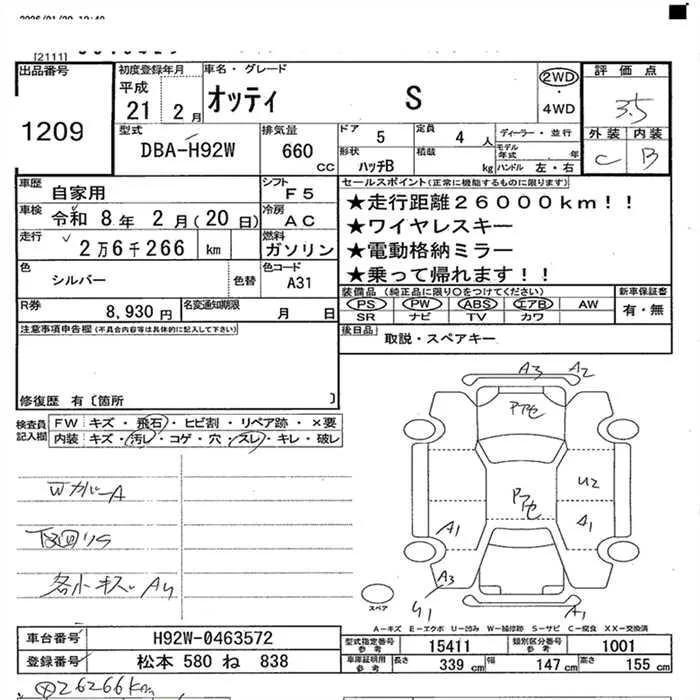 [2111]
出品番号
1209
初度登録年月
平成
21 2月
車名・グレード
オッティ S
2WD
・
4WD
評価点
3.5
外装 内装
C B
型式
DBA-H92W
排気量
660 CC
ドア 5
定員 4 人
形状 ハッチB
積載 kg
ディーラー・並行
モデル年式 年
ハンドル 左・右
車歴 自家用
シフト F5
車検 令和 8年 2月(20日)
冷房 AC
走行 2万6千266 km
燃料 ガソリン
色 シルバー 色替
色コード A31
R券 8,930円
名変通知期限 月 日
セールスポイント(正常に機能するものに限ります)
★走行距離26000km!!
★ワイヤレスキー
★電動格納ミラー
★乗って帰れます!!
装備品(純正品に限り○をつけてください)
PS PW ABS エアB AW
SR ナビ TV カワ
新車保証書
有・無
後日品 取説・スペアキー
注意事項申告欄(不具合内容等は具体的に記入して下さい)
修復歴 有〔箇所 〕
検査員記入欄
FW キズ・飛石・ヒビ割・リペア跡・×要
内装 キズ・汚レ・コゲ・穴・スレ・キレ・破レ
WカバーA
下回りS
各小キズA4
A3 A2
Pアセ
U2
Pアセ
A1
A1
A3
U1
A1
スペア
A-キズ E-エクボ U-凹み W-補修跡 S-サビ C-腐食 XX-交換済
車台番号 H92W-0463572
登録番号 松本 580 ね 838
型式指定番号 参考 15411
類別区分番号 参考 1001
車庫証明用 参考 長さ 339 cm 幅 147 cm 高さ 155 cm
26266km